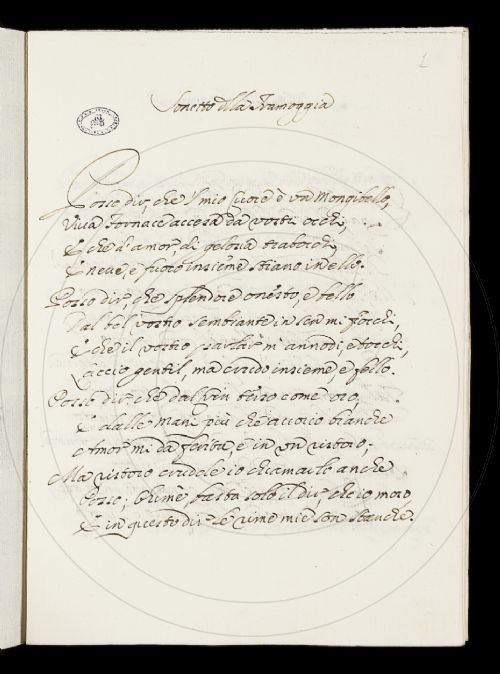 1
Sonetto alla Ramoggia
Posso dir, che 'l mio Cuore è un Mongibello,
Viva Fornace accesa da vostri occhi,
E che d'amor, di gelosia trabocchi,
E neve, e fuoco insieme stiano in ello.
Posso dir, che splendore onesto, e bello
Dal bel vostro sembiante in sen mi fiocchi,
E che il vostro parlar m'annodi, e tocchi,
Laccio gentil, ma crudo insieme, e fello.
Posso dir, che dal crin terso come oro,
E dalle mani più che avorio bianche
Amor mi dà ferita, e in un ristoro;
Ma ristoro crudele io chiamarlo anche
Posso; Ohimè, basta solo il dir, che io moro
E in questo dir le rime mie son stanche.